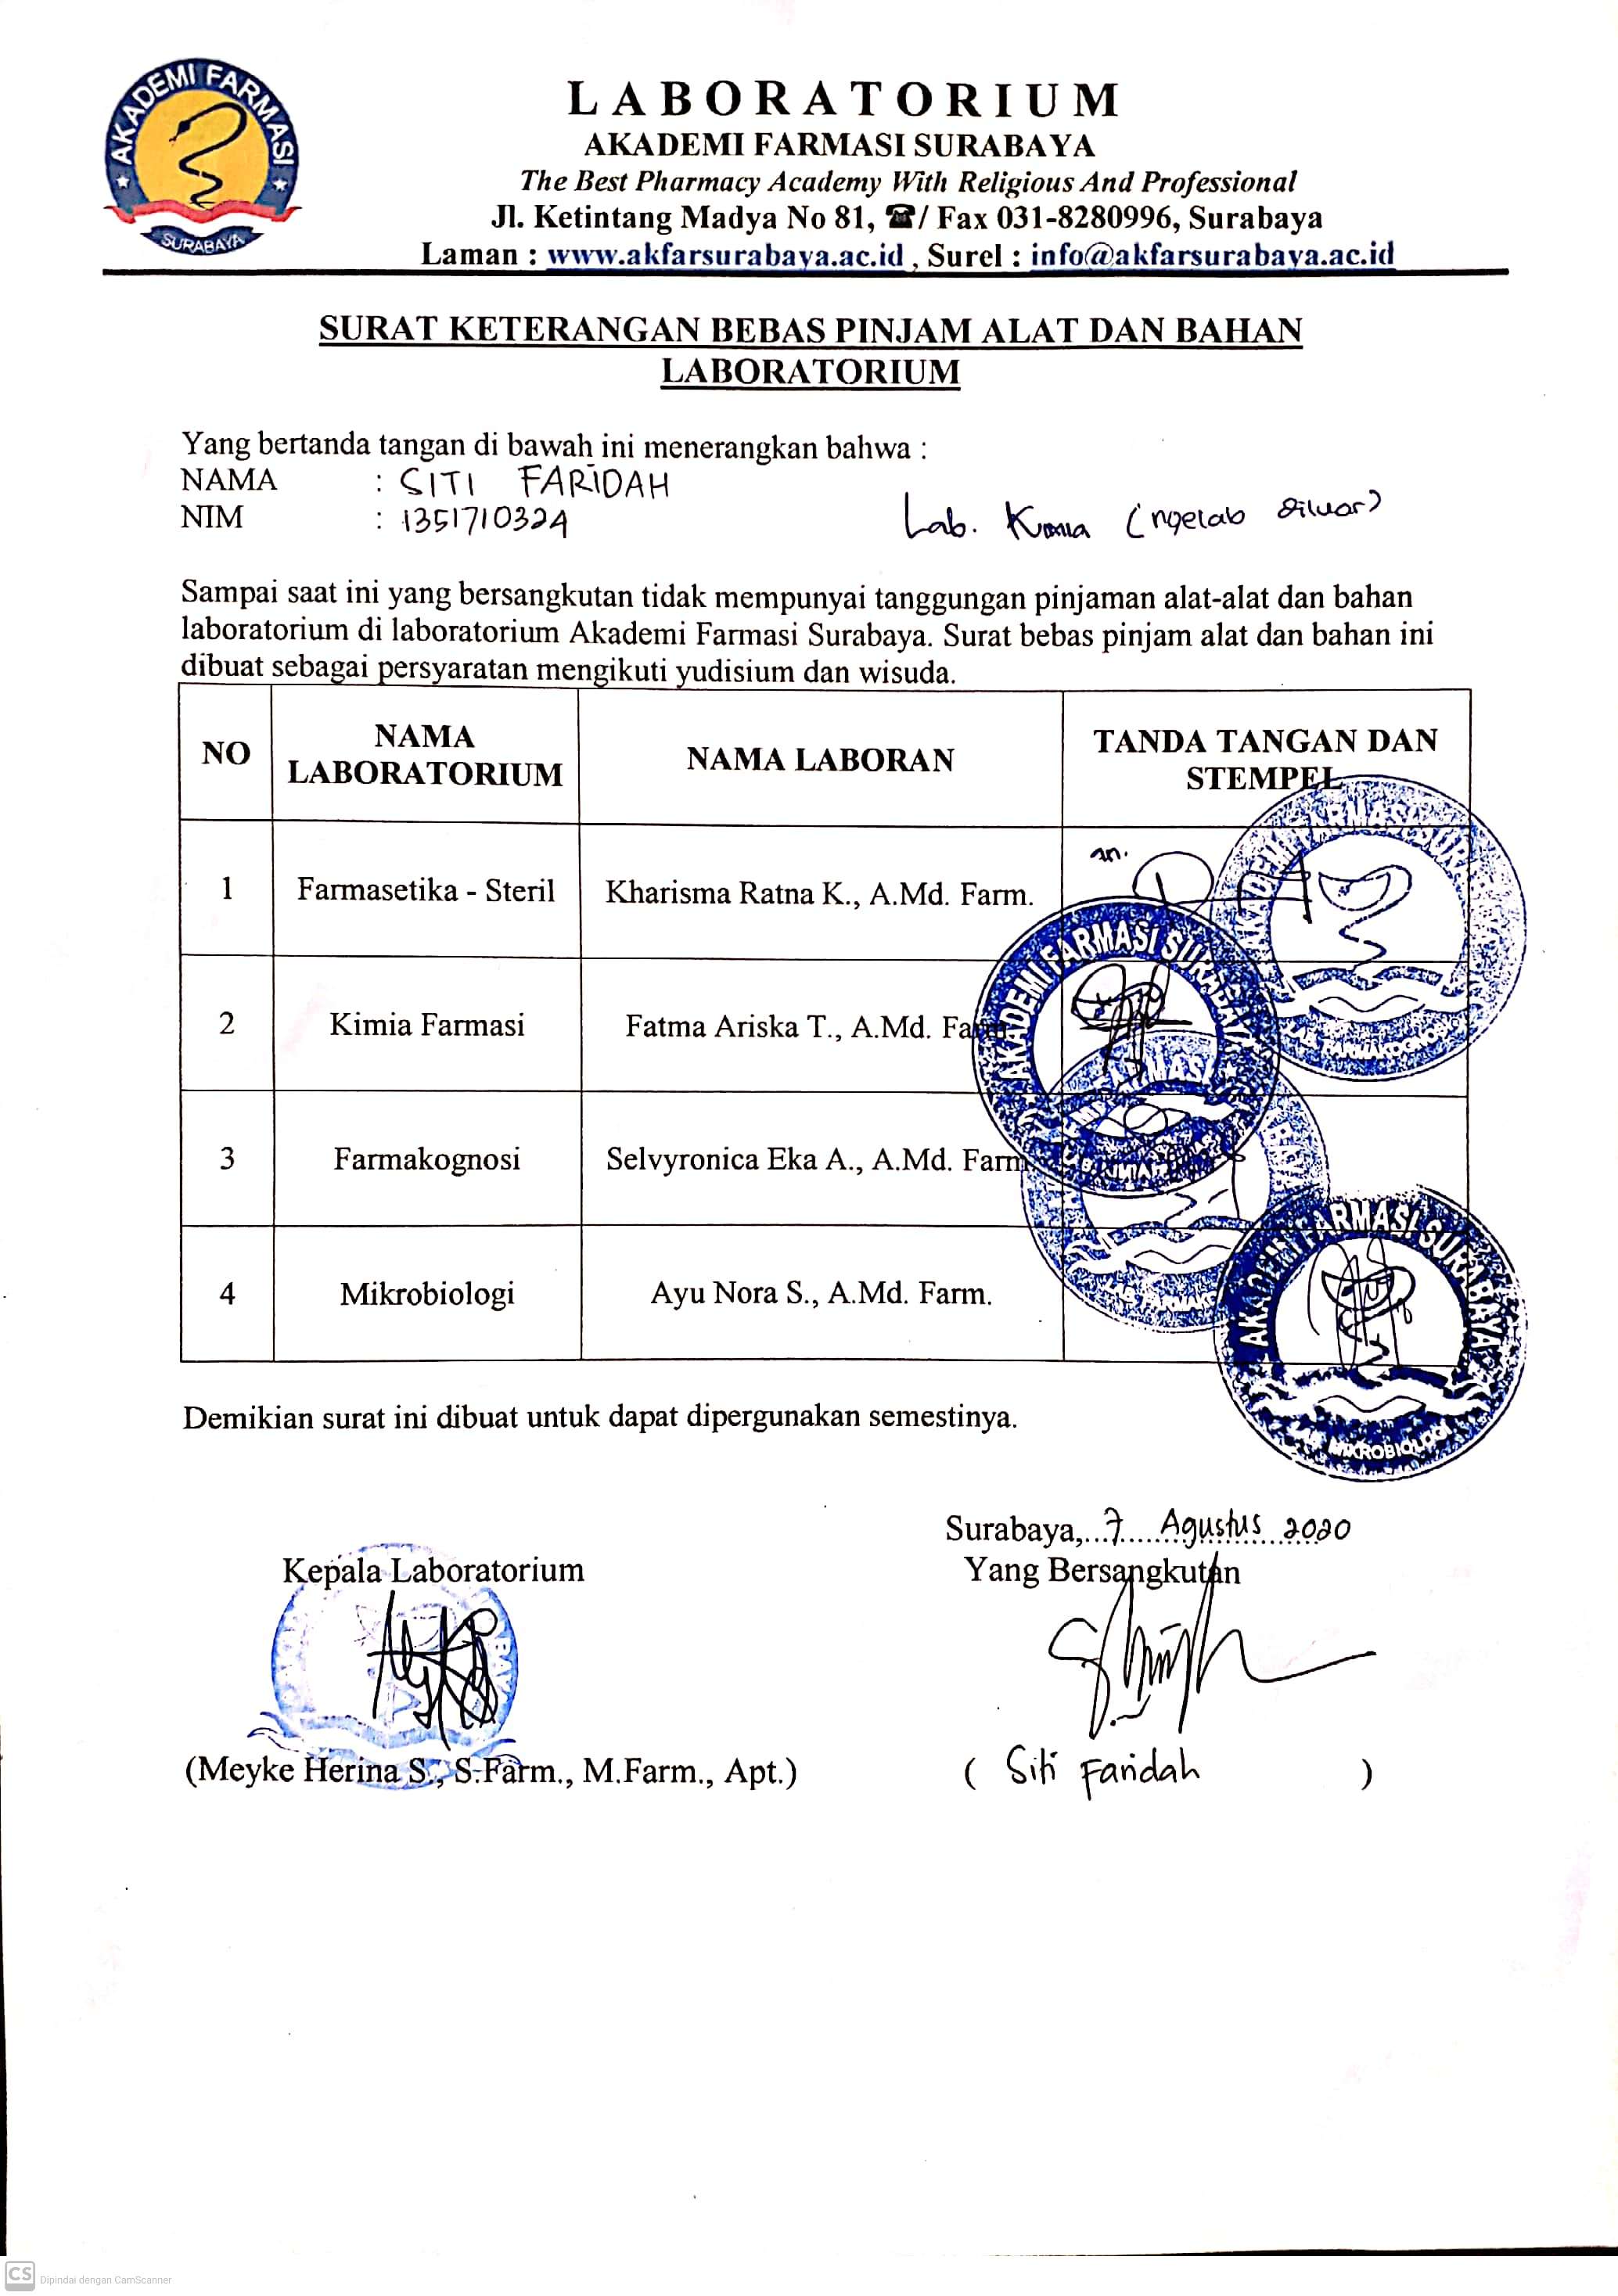 AKADEMI FARMASI
SURABAYA
LABORATORIUM
AKADEMI FARMASI SURABAYA
The Best Pharmacy Academy With Religious And Professional
Jl. Ketintang Madya No 81, ☎/ Fax 031-8280996, Surabaya
Laman : www.akfarsurabaya.ac.id , Surel : info@akfarsurabaya.ac.id
SURAT KETERANGAN BEBAS PINJAM ALAT DAN BAHAN
LABORATORIUM
Yang bertanda tangan di bawah ini menerangkan bahwa :
NAMA : SITI FARIDAH
NIM : 1351710324
Lab. Kimia (ngelab diluar)
Sampai saat ini yang bersangkutan tidak mempunyai tanggungan pinjaman alat-alat dan bahan
laboratorium di laboratorium Akademi Farmasi Surabaya. Surat bebas pinjam alat dan bahan ini
dibuat sebagai persyaratan mengikuti yudisium dan wisuda.
NO NAMA LABORATORIUM NAMA LABORAN TANDA TANGAN DAN STEMPEL
an.
1 Farmasetika - Steril Kharisma Ratna K., A.Md. Farm.
AKADEMI FARMASI SURABAYA
LAB. FARMAKOGNOSI
2 Kimia Farmasi Fatma Ariska T., A.Md. Farm
AKADEMI FARMASI SURABAYA
3 Farmakognosi Selvyronica Eka A., A.Md. Farm
4 Mikrobiologi Ayu Nora S., A.Md. Farm.
AKADEMI FARMASI SURABAYA
LAB. MIKROBIOLOGI
Demikian surat ini dibuat untuk dapat dipergunakan semestinya.
Surabaya, 7 Agustus 2020
Kepala Laboratorium Yang Bersangkutan
(Meyke Herina S., S.Farm., M.Farm., Apt.) ( Siti Faridah )
CS Dipindai dengan CamScanner